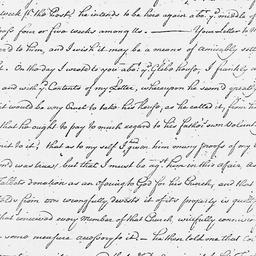 week for the Post; he intends to be here again abt. ye. middle of
pass four or five weeks among us. — Your Letter to M
ard to him, and I wish it may be a means of amicably settl
t. On the day I wrote to you abt. ye. House, I frankly
and with ye. Contents of my Letter, whereupon he seemed greatly
it would be very Cruel to take his House, as he called it, from
that he ought to pay to much regard to his father's own
unto it; that as to my self I given him many proofs of my
and was true; but that I must be agt. him in this Affair, as
donation as an offering to God for his Church, and that
from wrongfully diverts it of its property is guilty
that conceived every Member of that Church, willfully
some measure accessory to it — he then told me that